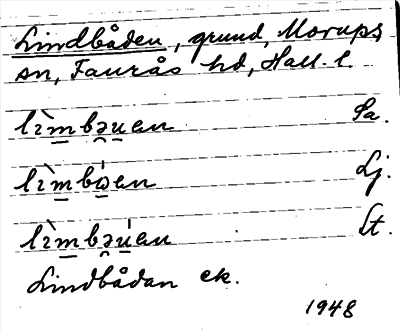 Lindbåden, grund, Morups
sn, Faurås hd, Hall. l.
lìmbəu̯en Sa.
lìmbɷ́en Lj.
lìmbəú̯en St.
Lindbådan ek.
1948